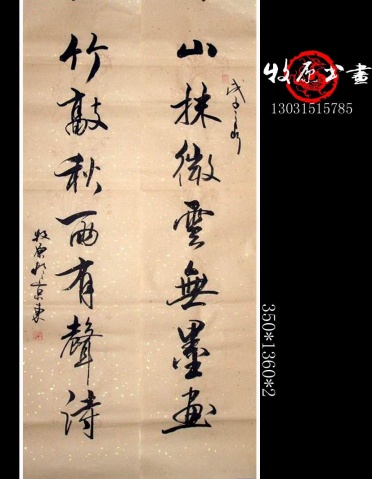 山抹微雲無墨畫
戊子
竹敲秋雨有聲詩
牧原於京東
牧原书畫
13031515785
350*1360*2